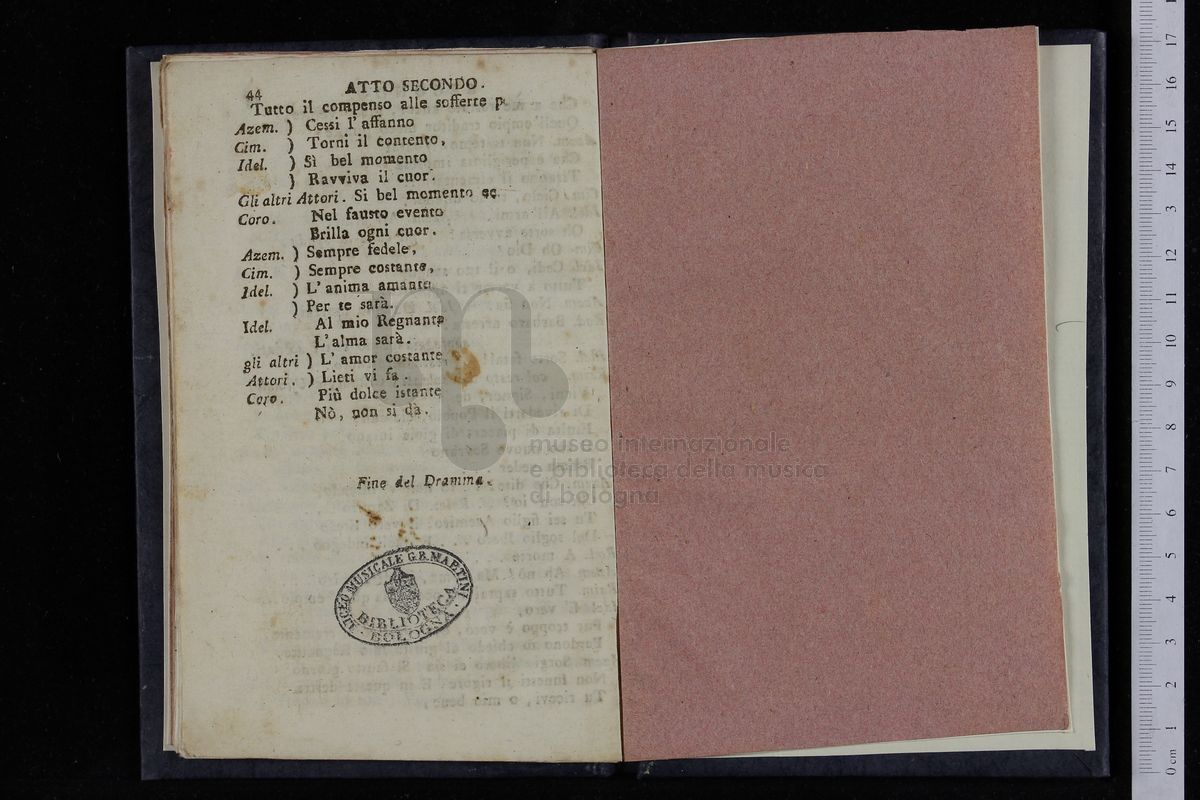 44 ATTO SECONDO.
Tutto il compenso alle sofferte
Azem. ) Cessi l' affanno
Cim. ) Torni il contento,
Idel. ) Sì bel momento
) Ravviva il cuor.
Gli altri Attori. Si bel momento ec.
Coro. Nel fausto evento
Brilla ogni cuor.
Azem. ) Sempre fedele,
Cim. ) Sempre costante,
Idel. ) L' anima amante
) Per te sarà.
Idel. Al mio Regnante
L' alma sarà.
gli altri ) L' amor costante
Attori. ) Lieti vi fa.
Coro. Più dolce istante
Nò, non si dà.
Fine del Dramma.
LICEO MUSICALE G.B. MARTINI
BIBLIOTECA
· BOLOGNA ·
museo internazionale
e biblioteca della musica
di bologna
17
16
15
14
13
12
11
10
9
8
7
6
5
4
3
2
1
0 cm